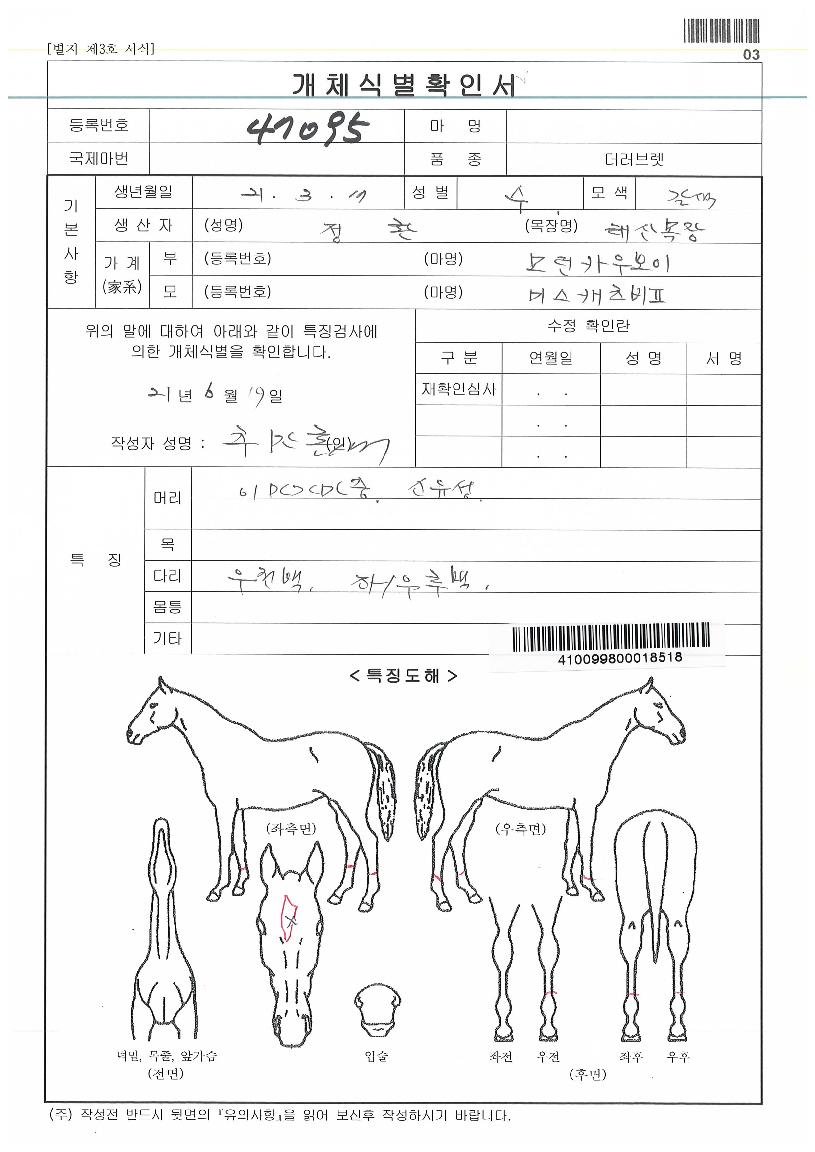 [별지 제3호 서식]
03
개체식별확인서
등록번호 47095 마 명
국제마번 품 종 더러브렛
기본사항
생년월일 21. 3. 성별 수 모색 갈색
생 산 자 (성명) 정 환 (목장명) 태산목장
가계 (家系) 부 (등록번호) (마명) 모던카우보이
모 (등록번호) (마명) 미스캐츠비Ⅱ
위의 말에 대하여 아래와 같이 특징검사에
의한 개체식별을 확인합니다.
21년 6월 19일
작성자 성명 : (인)
수정 확인란
구분 연월일 성명 서명
재확인심사 . .
. .
. .
특 징
머리
목
다리 우전백, 하/우후백.
몸통
기타
410099800018518
< 특징도해 >
(좌측면) (우측면)
녀밑, 목줄, 앞가슴
(전면)
입술
좌전 우전 좌후 우후
(후면)
(주) 작성전 반드시 뒷면의 『유의사항』을 읽어 보신후 작성하시기 바랍니다.